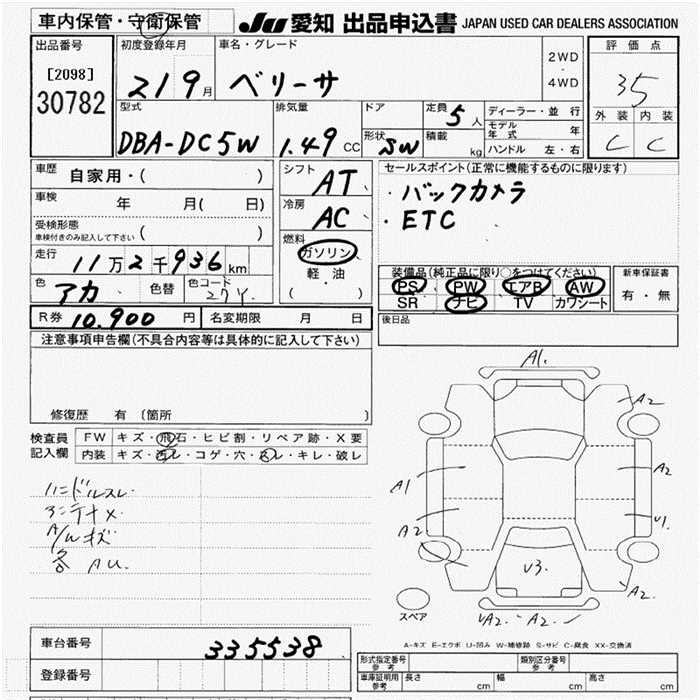 車内保管・守衛保管
JU 愛知 出品申込書 JAPAN USED CAR DEALERS ASSOCIATION
出品番号
[2098]
30782
初度登録年月
21 9月
車名・グレード
ベリーサ
2WD
・
4WD
評価点
35
外装 内装
C C
型式
DBA-DC5W
排気量
1.49 CC
ドア
形状 SW
定員 5人
積載 kg
ディーラー・並行
モデル年式 年
ハンドル 左・右
車歴 自家用・( )
車検 年 月( 日)
受検形態
車検付きのみ記入して下さい ( )
走行 11万2千936km
色 アカ
色替
色コード 27Y
シフト AT
冷房 AC
燃料
ガソリン
軽・油
( )
セールスポイント(正常に機能するものに限ります)
・バックカメラ
・ETC
装備品(純正品に限り○をつけてください)
PS PW エアB AW
SR ナビ TV カワシート
新車保証書
有・無
R券 10,900 円
名変期限 月 日
後日品
注意事項申告欄(不具合内容等は具体的に記入して下さい)
修復歴 有 (箇所 )
検査員記入欄
FW キズ・飛石・ヒビ割・リペア跡・X要
内装 キズ・西レ・コゲ・穴・スレ・キレ・破レ
ハンドルスレ
A/Wキズ
各 AU.
A1.
A2
A1
A2
A2.
U1.
U3.
A2
UA2. A2.
スペア
A-キズ E-エクボ U-凹み W-補修跡 S-サビ C-腐食 XX-交換済
車台番号 335538
登録番号
形式指定番号 参考
類別区分番号 参考
車庫証明用 参考
長さ cm 幅 cm 高さ cm